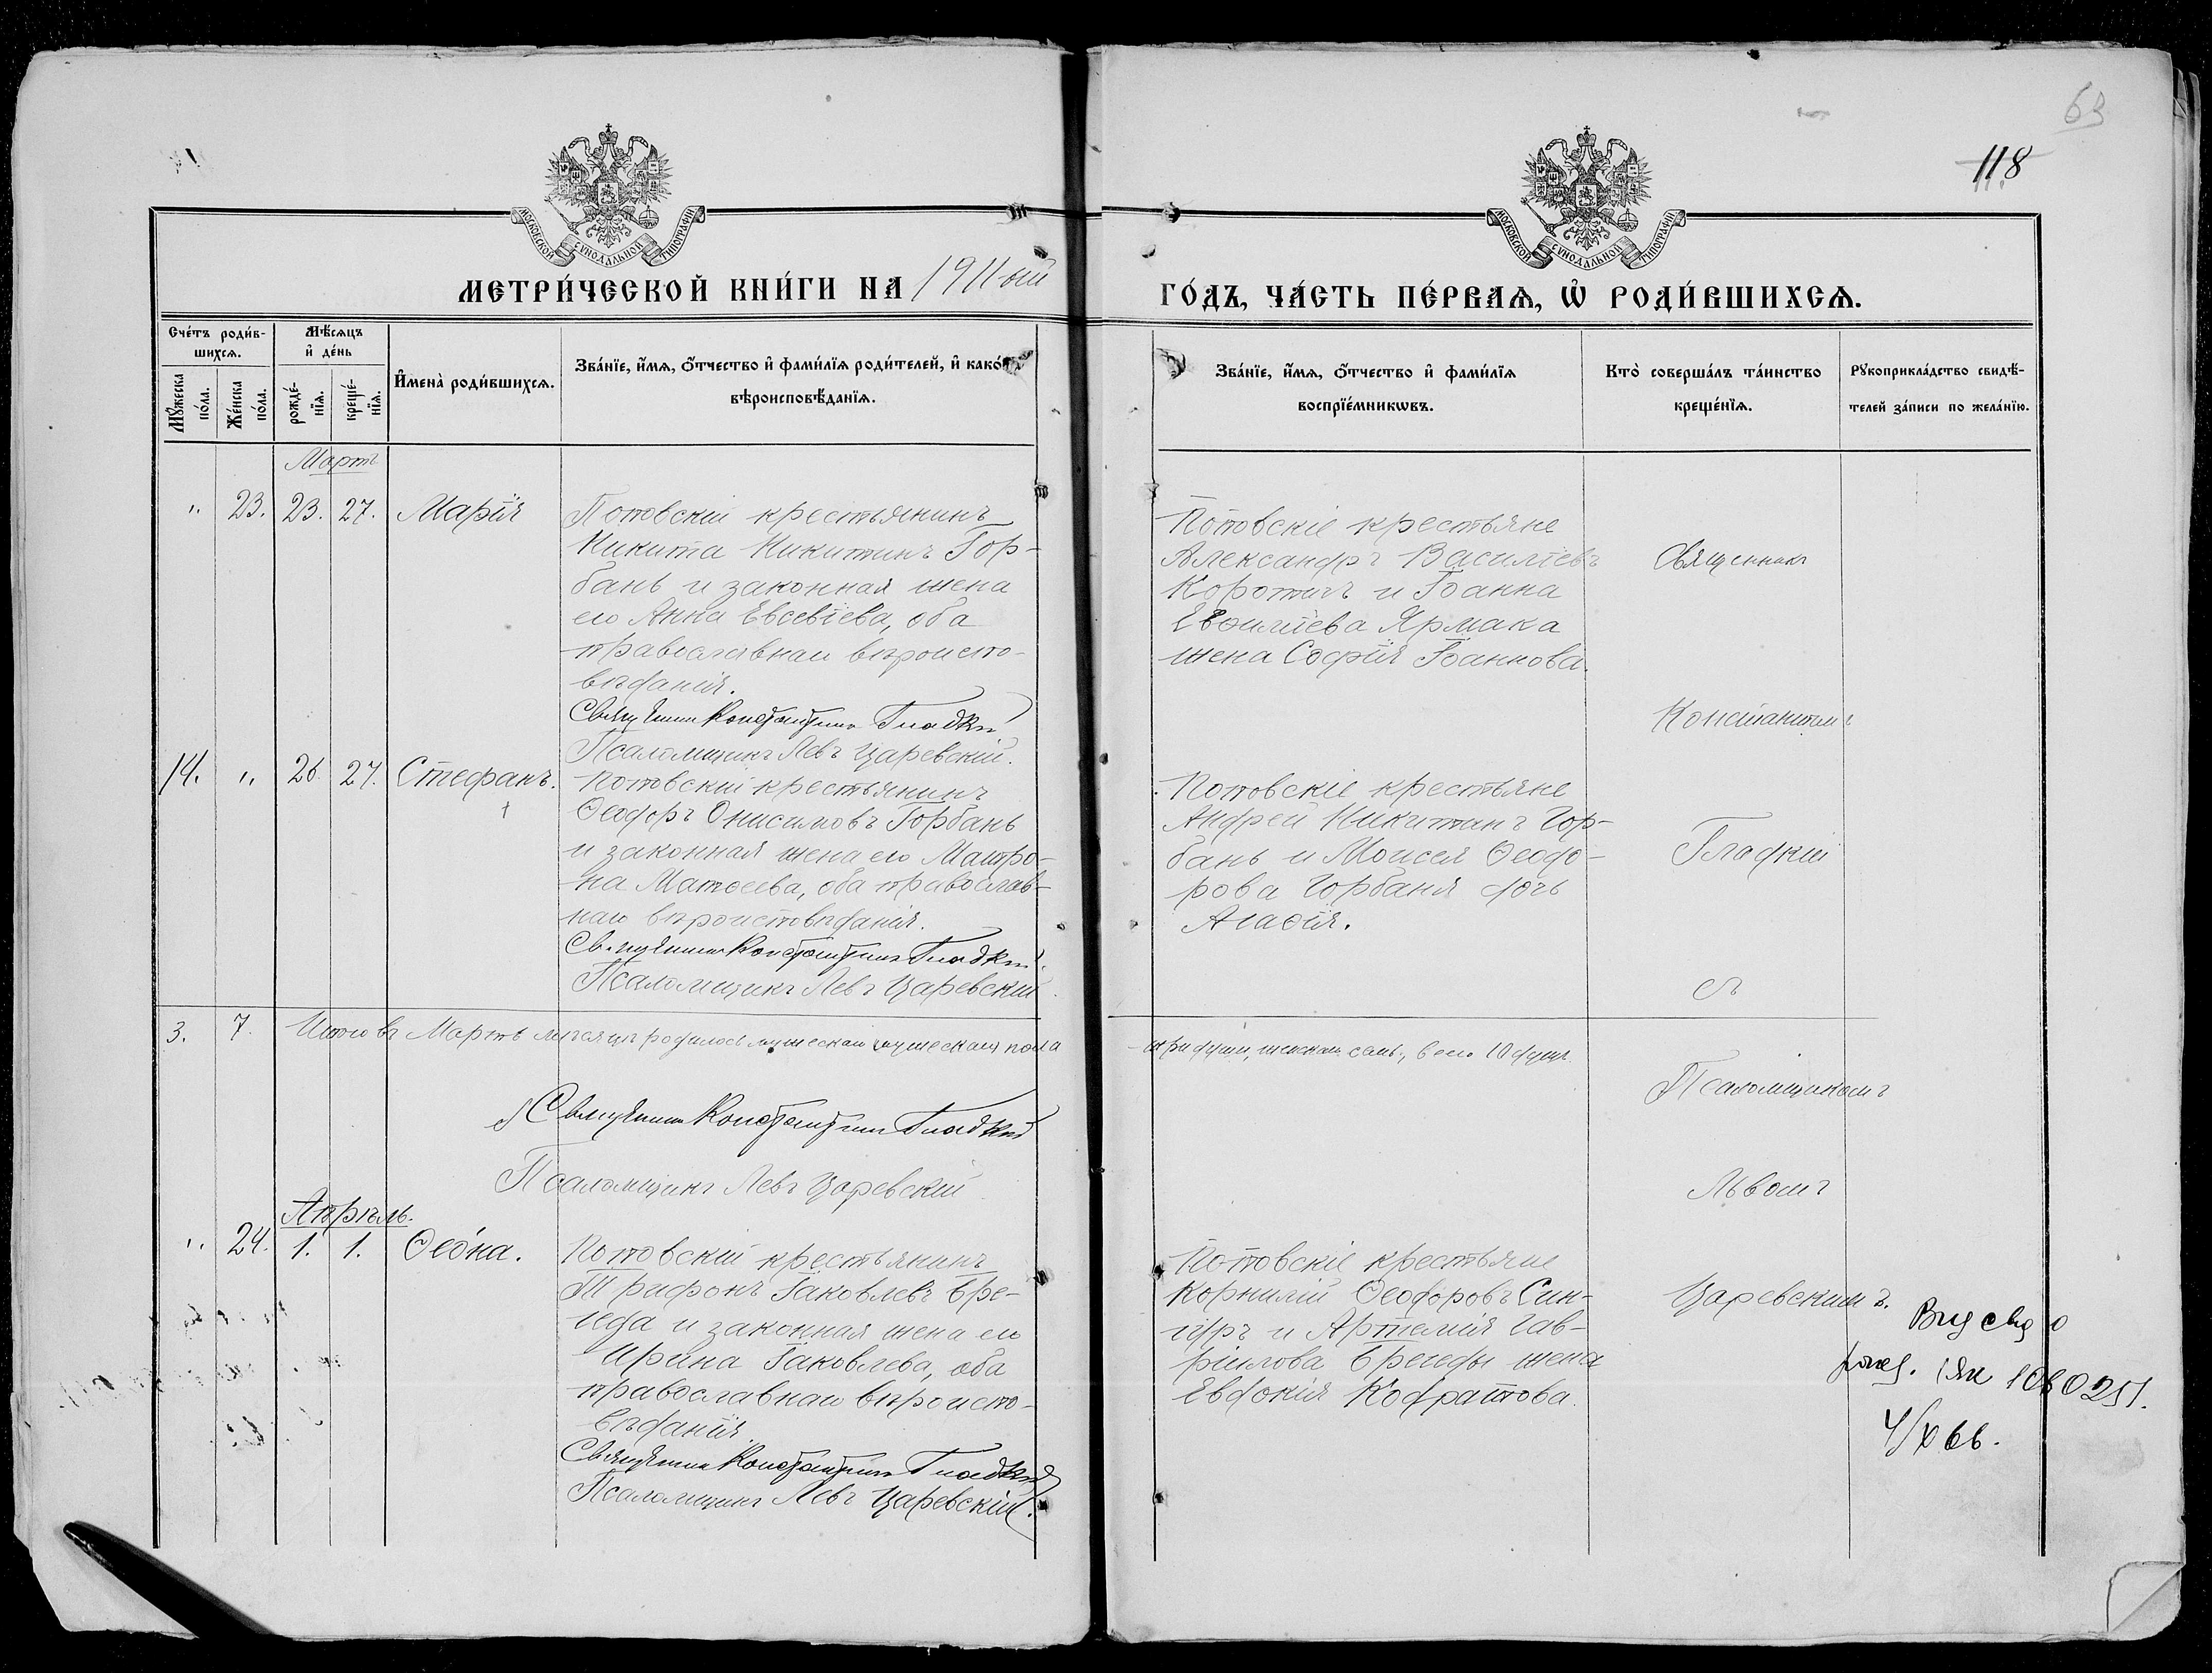 63
118
МОСКОВСКОЙ СУНОДАЛЬНОЙ ТИПОГРАФІИ
МОСКОВСКОЙ СУНОДАЛЬНОЙ ТИПОГРАФІИ
МЕТРИ́ЧЕСКОЙ КНИ́ГИ НА 1911ый
ГО́ДЪ, ЧА́СТЬ ПЕ́РВАѦ, Ѡ҆ РОДИ́ВШИХСѦ.
Сче́тъ роди́в-
шихсѧ.
Мꙋ́жеска по́ла.
Же́нска по́ла.
Мѣ́сѧцъ
и҆ де́нь
рожде́-
нїѧ.
креще́-
нїѧ.
И҆мена̀ роди́вшихсѧ.
Зва́нїе, и҆́мѧ, ѻ҆́тчество и҆ фами́лїѧ роди́телей, и҆ како́гѡ
вѣроисповѣ́данїѧ.
Зва́нїе, и҆́мѧ, ѻ҆́тчество и҆ фами́лїѧ
воспрїе́мникѡвъ.
Кто̀ соверша́лъ та́инство
креще́нїѧ.
Рꙋкоприкла́дство свидѣ́-
телей за́писи по жела́нїю.
Мартъ
" 23. 23. 27. Марія
Потовскій крестьянинъ
Никита Никитинъ Гор-
бань и законная жена
его Анна Евсевіева, оба
православнаго вѣроиспо-
вѣданія.
Священникъ Константинъ Гладкій
Псаломщикъ Левъ Царевскій.
Потовскіе крестьяне
Александръ Василіевъ
Коротичъ и Іоанна
Ярмака
жена Софія Іоаннова.
14. " 26. 27. Стефанъ.
Потовскій крестьянинъ
Ѳеодоръ Онисимовъ Горбань
и законная жена его Матро-
на Матѳеева, оба православ-
наго вѣроисповѣданія.
Священникъ Константинъ Гладкій.
Псаломщикъ Левъ Царевскій.
Потовскіе крестьяне
Андрей Никитинъ Гор-
бань и Моисея Ѳеодо-
рова Горбаня дочь
Агаѳія.
Священникъ
Константинъ
Гладкій
съ
Псаломщикомъ
Львомъ
Царевскимъ.
3. 7. Итого въ Мартѣ мѣсяцѣ родилось мужескаго пола
три души, женскаго семь, всего 10 душъ.
Священникъ Константинъ Гладкій
Псаломщикъ Левъ Царевскій
Апрѣль.
" 24. 1. 1. Ѳео́на.
Потовскій крестьянинъ
Трифонъ Іаковлевъ Бре-
геда и законная жена его
Ирина Іаковлева, оба
православнаго вѣроиспо-
вѣданія.
Священникъ Константинъ Гладкій
Псаломщикъ Левъ Царевскій.
Потовскіе крестьяне
Корнилій Ѳеодоровъ Син-
гуръ и Артемія Гав-
ріилова Брегеды жена
Евдокія Кодратова.